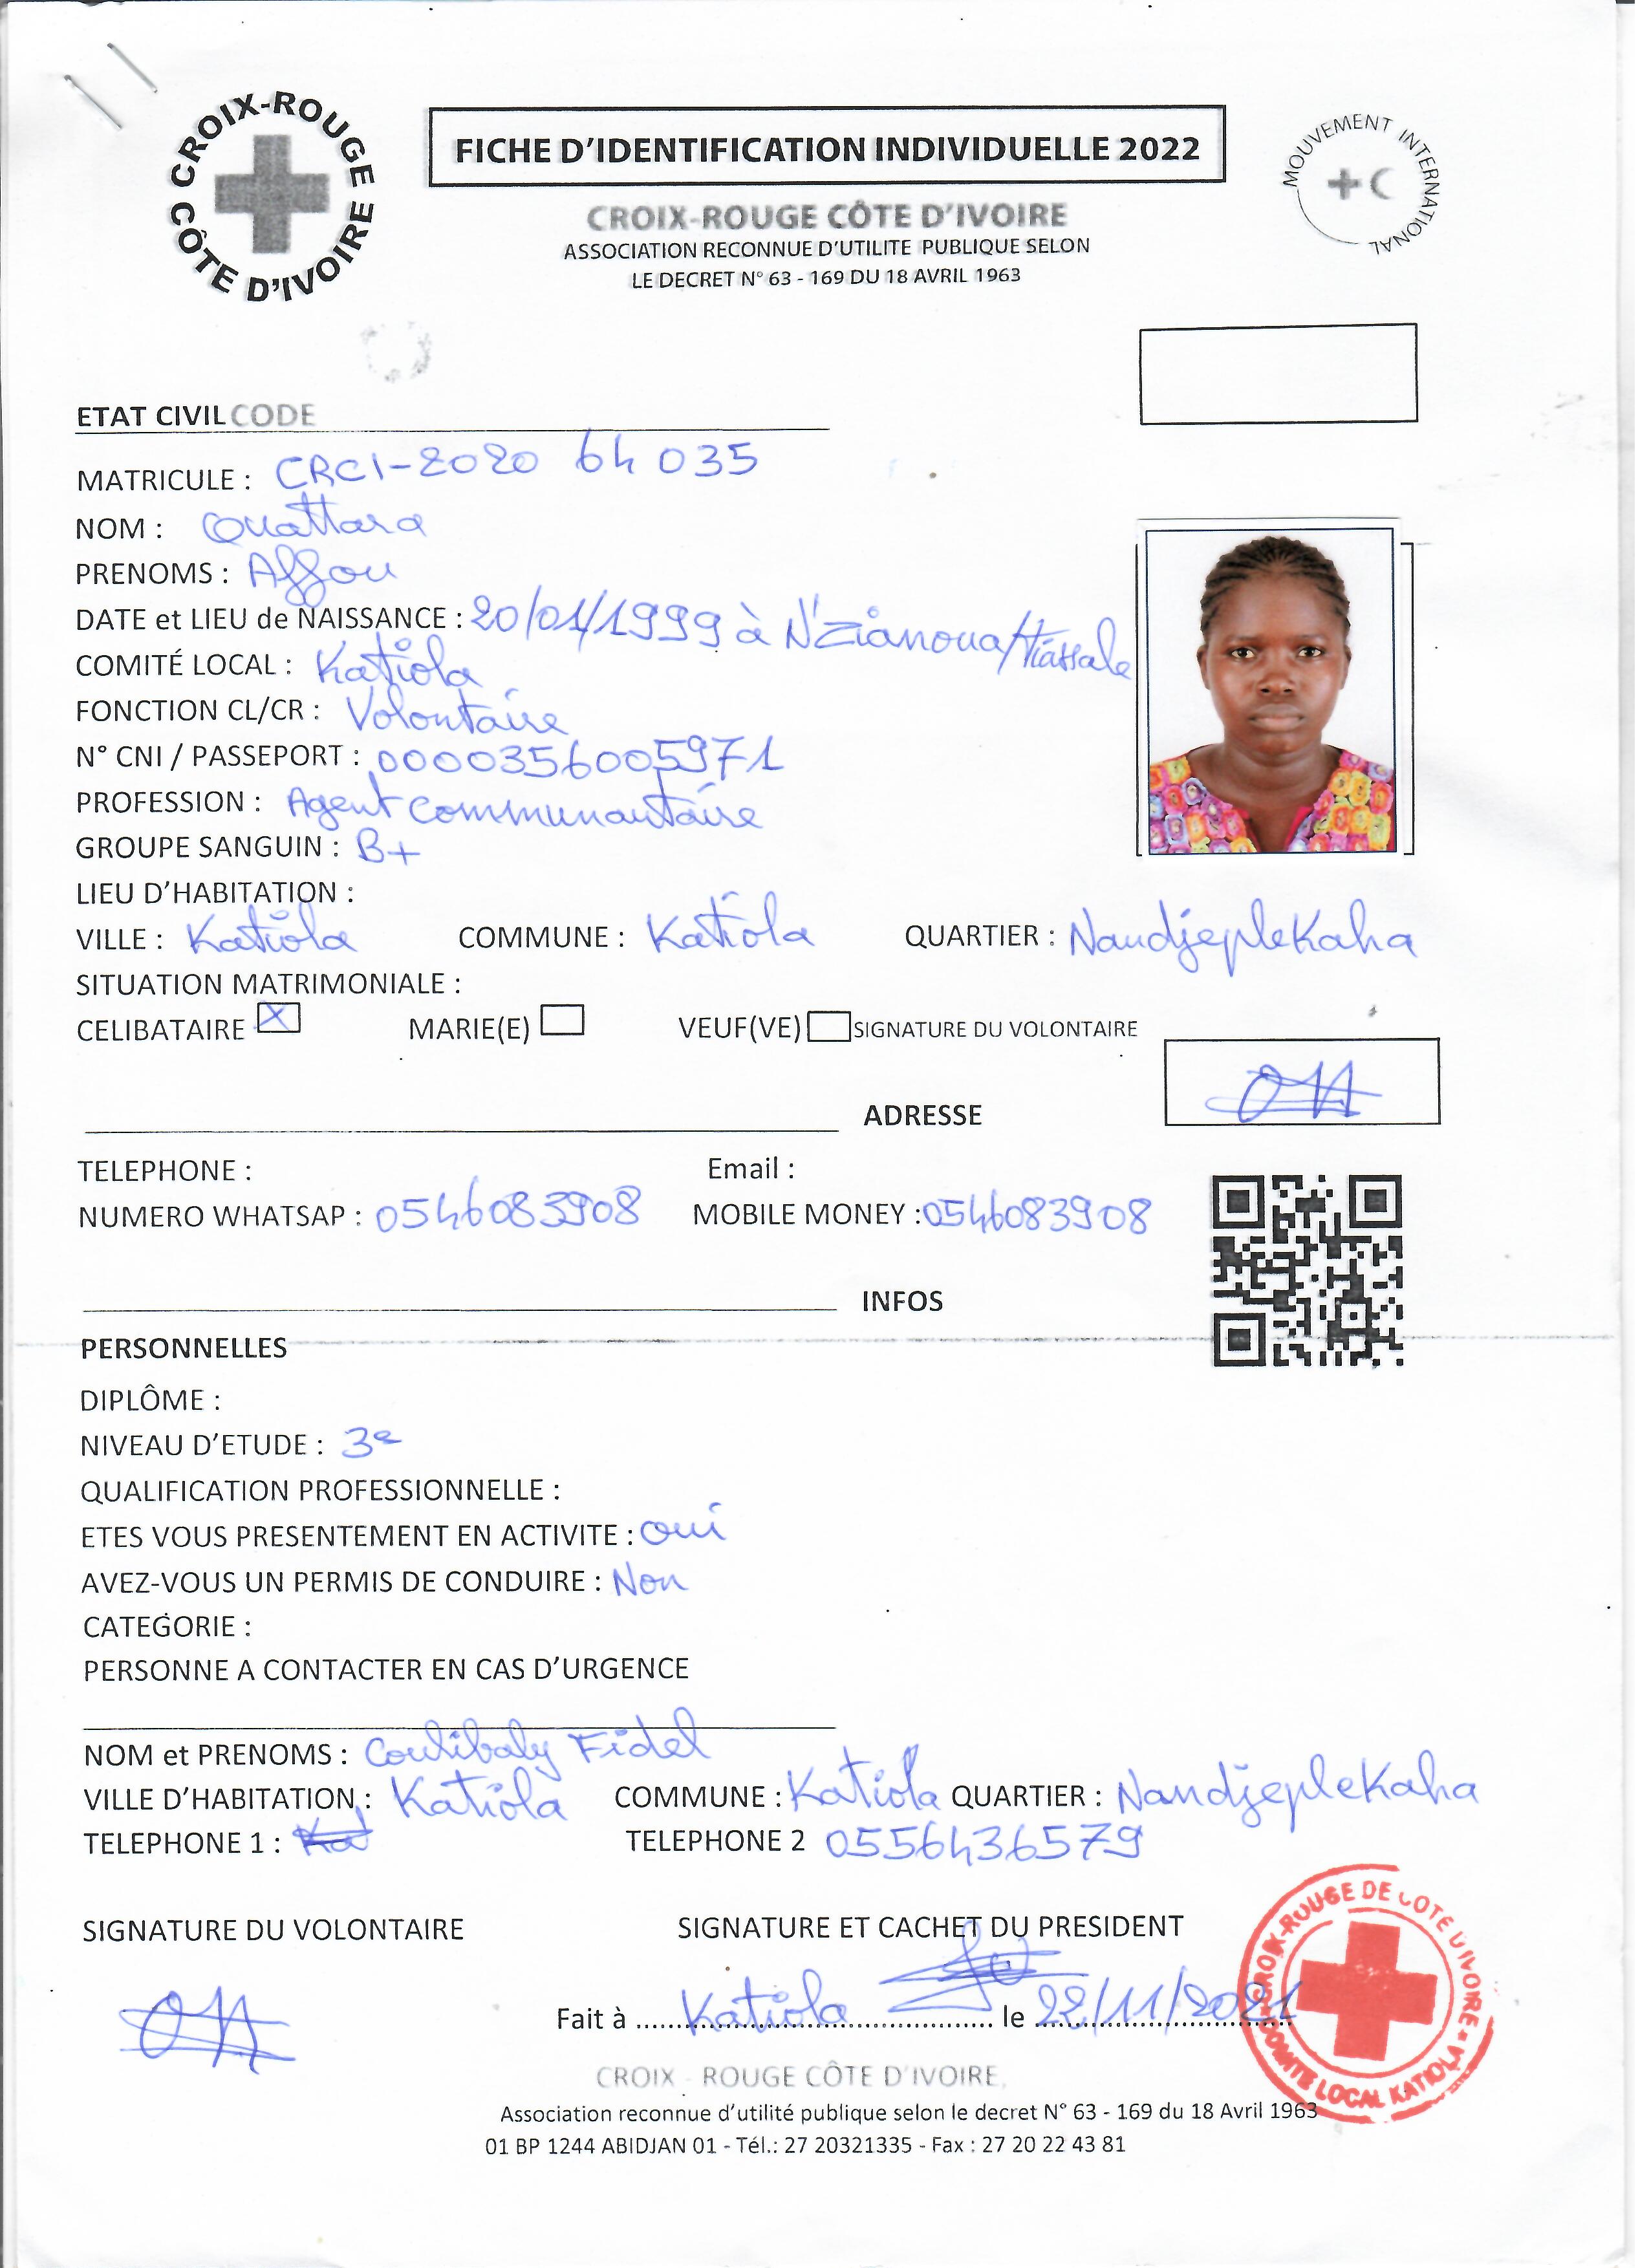 CROIX-ROUGE CÔTE D'IVOIRE
FICHE D'IDENTIFICATION INDIVIDUELLE 2022
MOUVEMENT INTERNATIONAL
CROIX-ROUGE CÔTE D'IVOIRE
ASSOCIATION RECONNUE D'UTILITE PUBLIQUE SELON
LE DECRET N° 63 - 169 DU 18 AVRIL 1963
ETAT CIVIL CODE
MATRICULE : CRCI-2020 64 035
NOM : Ouattara
PRENOMS : Affou
DATE et LIEU de NAISSANCE : 20/01/1999 à N'Zianoua/Tiassale
COMITÉ LOCAL : Katiola
FONCTION CL/CR : Volontaire
N° CNI / PASSEPORT : 0000356005971
PROFESSION : Agent Communautaire
GROUPE SANGUIN : B+
LIEU D'HABITATION :
VILLE : Katiola COMMUNE : Katiola QUARTIER : NandjepleKaha
SITUATION MATRIMONIALE :
CELIBATAIRE X MARIE(E) VEUF(VE) SIGNATURE DU VOLONTAIRE
ADRESSE
TELEPHONE : Email :
NUMERO WHATSAP : 0546083908 MOBILE MONEY : 0546083908
INFOS
PERSONNELLES
DIPLÔME :
NIVEAU D'ETUDE : 3e
QUALIFICATION PROFESSIONNELLE :
ETES VOUS PRESENTEMENT EN ACTIVITE : oui
AVEZ-VOUS UN PERMIS DE CONDUIRE : Non
CATEGORIE :
PERSONNE A CONTACTER EN CAS D'URGENCE
NOM et PRENOMS : Coulibaly Fidel
VILLE D'HABITATION : Katiola COMMUNE : Katiola QUARTIER : NandjepleKaha
TELEPHONE 1 : TELEPHONE 2 0556436579
SIGNATURE DU VOLONTAIRE SIGNATURE ET CACHET DU PRESIDENT
Fait à Katiola le 22/11/2021
CROIX-ROUGE DE COTE D'IVOIRE COMITE LOCAL KATIOLA
CROIX - ROUGE CÔTE D'IVOIRE,
Association reconnue d'utilité publique selon le decret N° 63 - 169 du 18 Avril 1963
01 BP 1244 ABIDJAN 01 - Tél.: 27 20321335 - Fax : 27 20 22 43 81